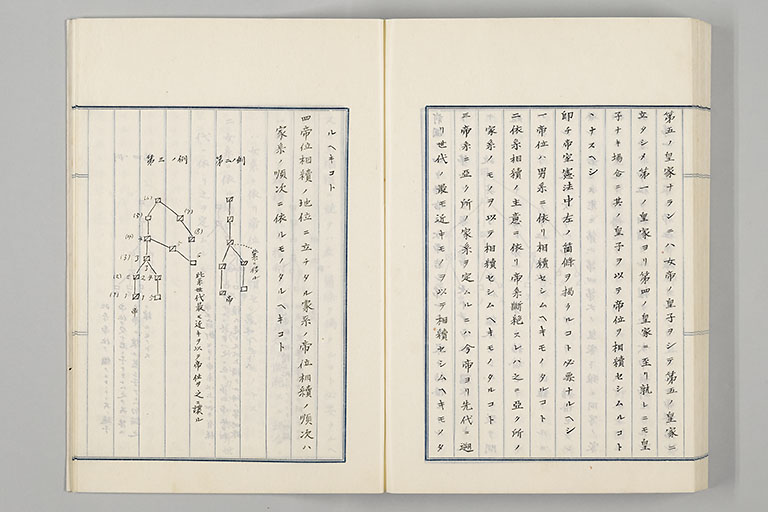 第五ノ皇家ナランニハ女帝ノ皇子ヲシテ第五ノ皇家ニ
立タシメ第一ノ皇家ヨリ第四ノ皇家ニ至リ孰レニモ皇
子ナキ場合ニ其ノ皇子ヲ以テ帝位ヲ相續セシムルコト
トナスヘシ
即チ帝室憲法中左ノ箇條ヲ掲クルコト必要ナルヘシ
一帝位ハ男系ニ依リ相續セシムヘキモノタルコト
二依系相續ノ主意ニ依リ帝系斷絶スレハ之ニ亞ク所ノ
家系ノモノヲ以テ相續セシムヘキモノタルコト
三帝系ニ亞ク所ノ家系ヲ定ムルニハ今帝ヨリ先代ニ遡
リ世代ノ最モ近キモノヲ以テ相續セシムヘキモノタ
ルヘキコト
四帝位相續ノ地位ニ立チタル家系ノ帝位相續ノ順次ハ
家系ノ順次ニ依ルモノタルヘキコト
第二ノ例
帝
第三ノ例
此系世代最モ近キヲ以テ帝位ヲ之ニ讓ル
帝